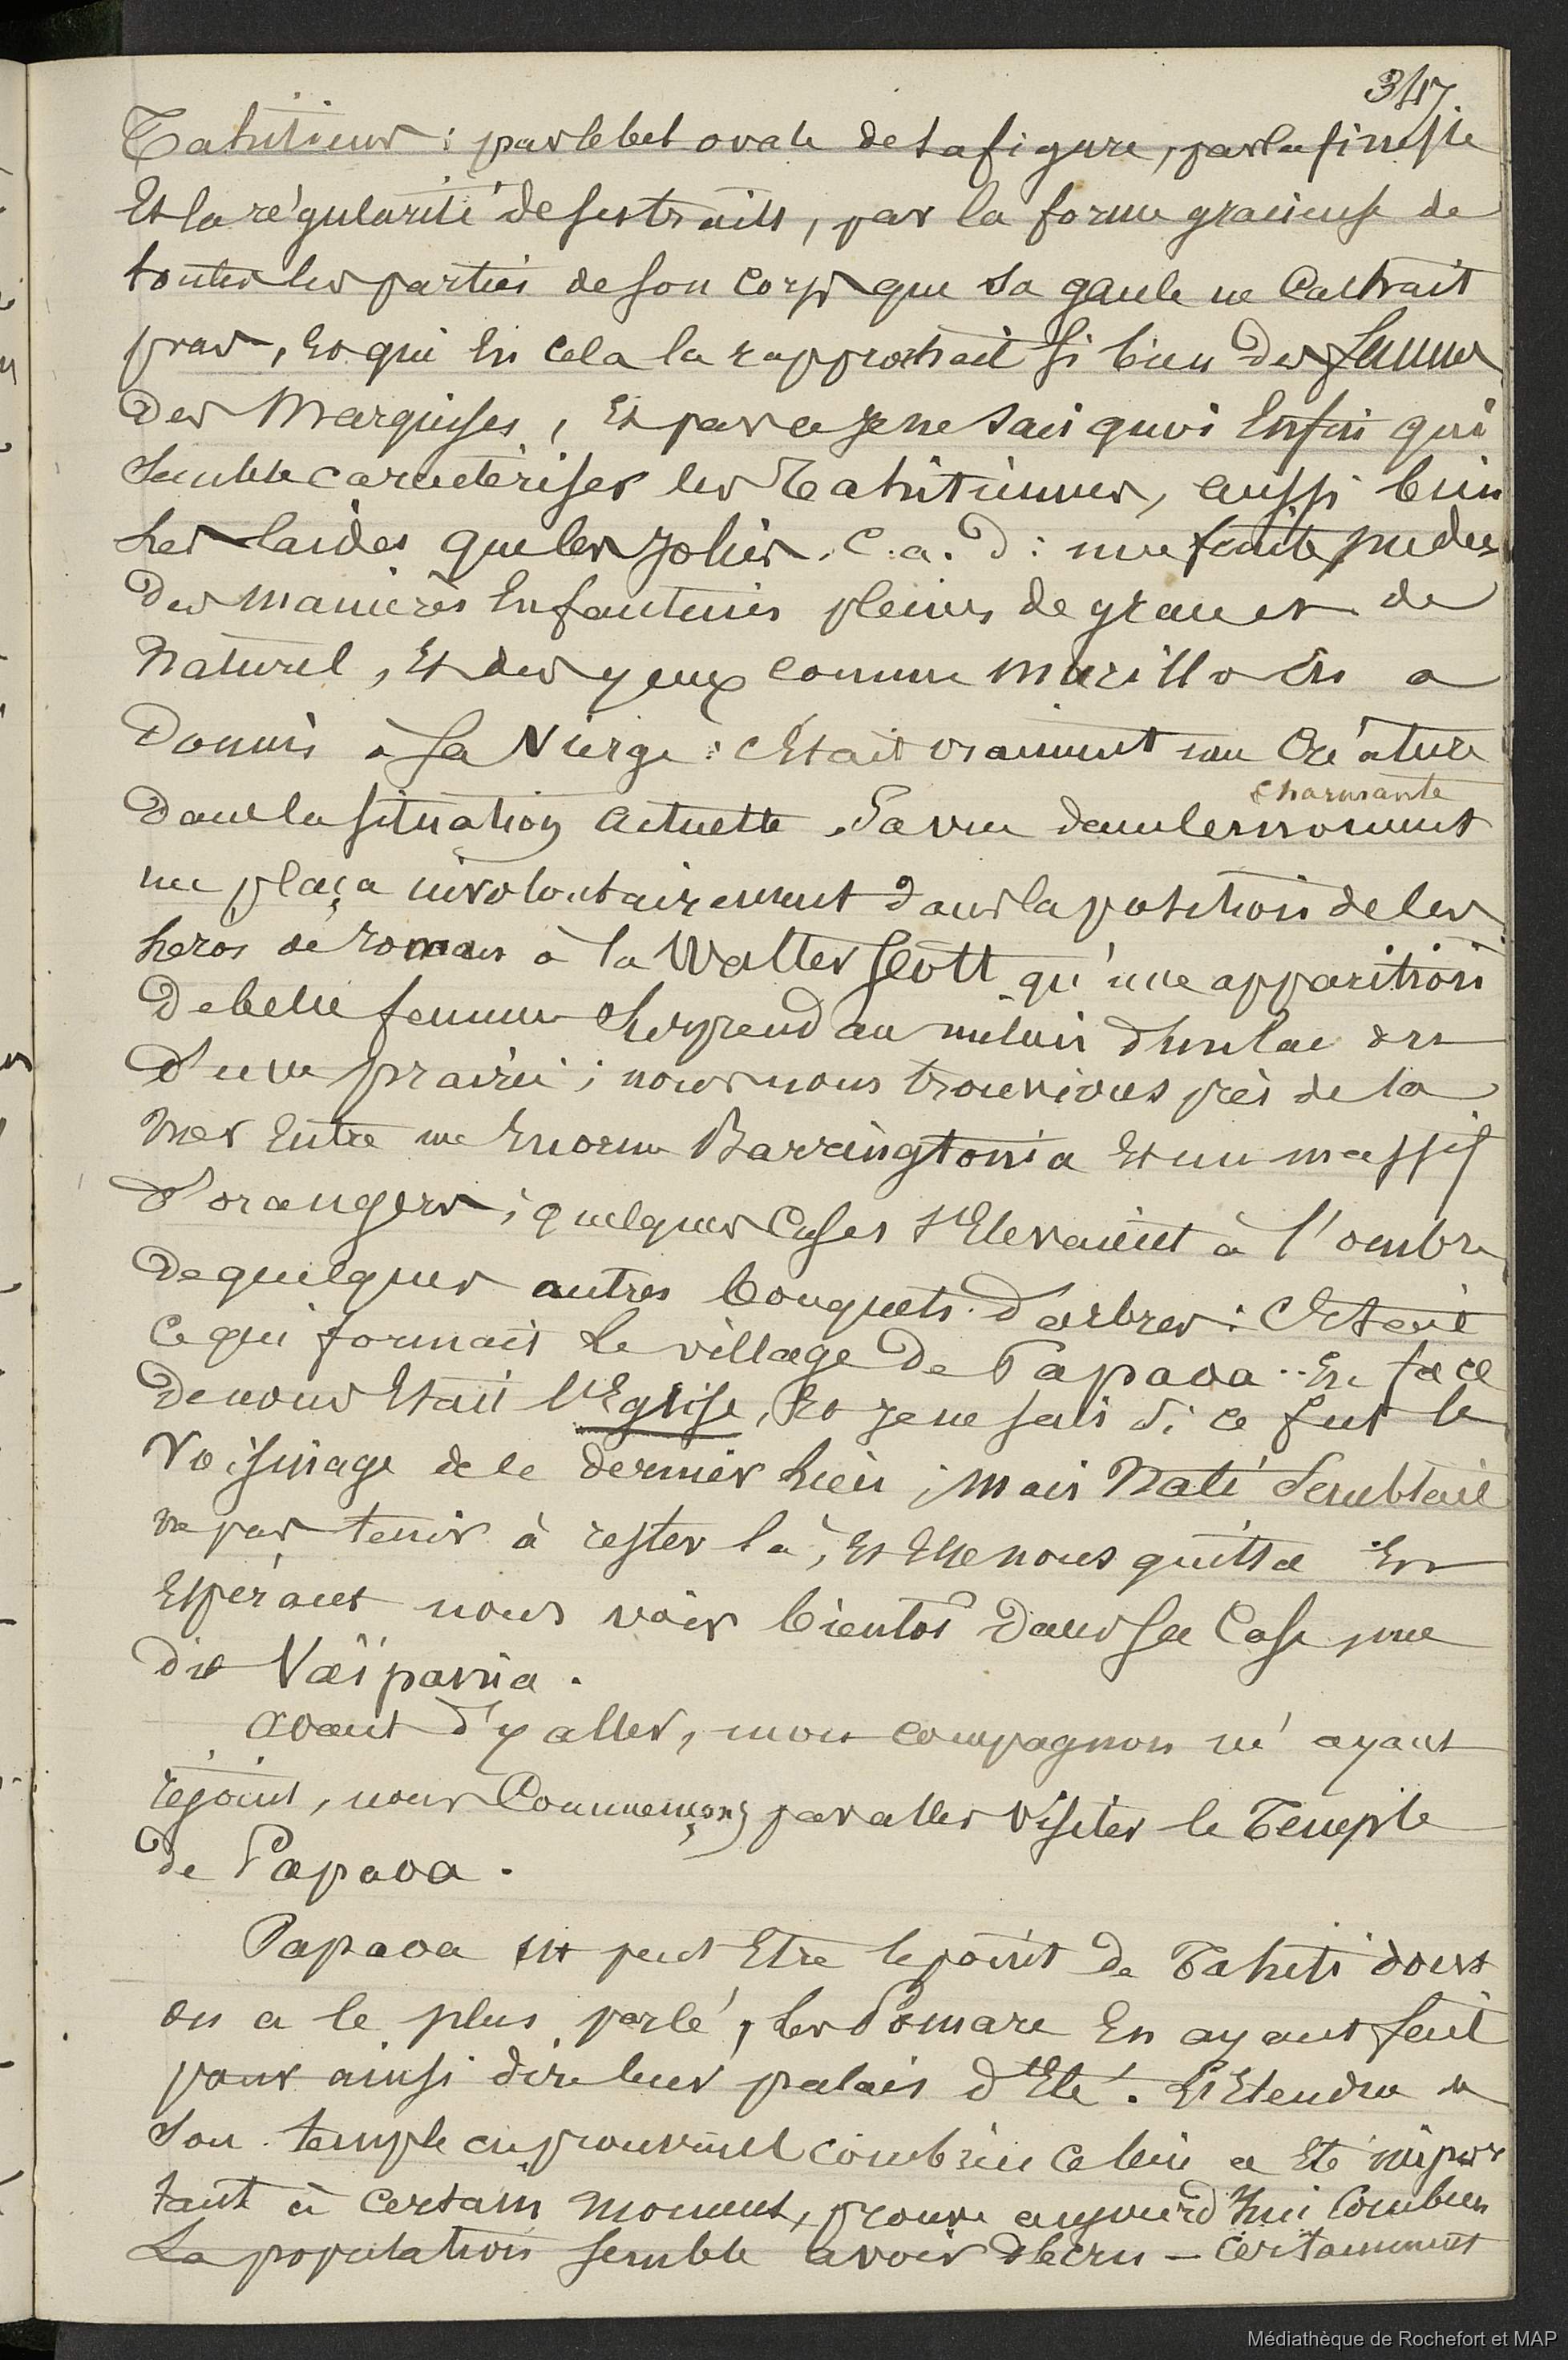 347.
Tahitiens : par le bel ovale de sa figure, par la finesse
Et la régularité de ses traits, par la forme gracieuse de
toutes les parties de son corps que sa gaule ne cachait
pas, Et qui En cela la rapprochait si bien des femmes
des Marquises, Et par ce je ne sais quoi Enfin qui
semble caractériser les Tahitiennes, aussi bien
les laides que les jolies. C.a.d : une
des manières Enfantines pleines de grace et de
Naturel, Et des yeux comme Murillo En a
donnés à sa Vierge : c'Etait vraiment une Créature
charmante
dans la situation actuelle. Sa vue dans le moment
me plaça involontairement dans la position de ces
heros de romans à la Walter Scott qu'une apparition
de belle femme surprend au milieu d'un lac ou
d'une prairie ; nous nous trouvions près de la
Mer Entre un Enorme Barringtonia Et un massif
d'orangers ; quelques Cases s'Elevaient à l'ombre
de quelques autres bouquets d'arbres : C'Etait
ce qui formait le village de Papaoa. En face
de nous Etait l'Eglise, Et je ne sais si ce fut le
Voisinage de ce dernier lieu ; mais Naté semblait
ne pas tenir à rester là, Et Elle nous quitta En
Espérant nous voir bientot dans sa Case, me
dit Vaïparia.
Avant d'y aller, mon compagnon m'ayant
rejoint, nous Commençons par aller Visiter le Temple
de Papaoa.
Papaoa est peut Etre le point de Tahiti dont
on a le plus parlé, les Pomare En ayant fait
pour ainsi dire leur palais d'Eté. L'Etendue de
son temple en prouvant combien ce lieu a Eté impor
tant à certain moment, prouve aujourd'hui Combien
La population semble avoir décru - Certainement
Médiathèque de Rochefort et MAP